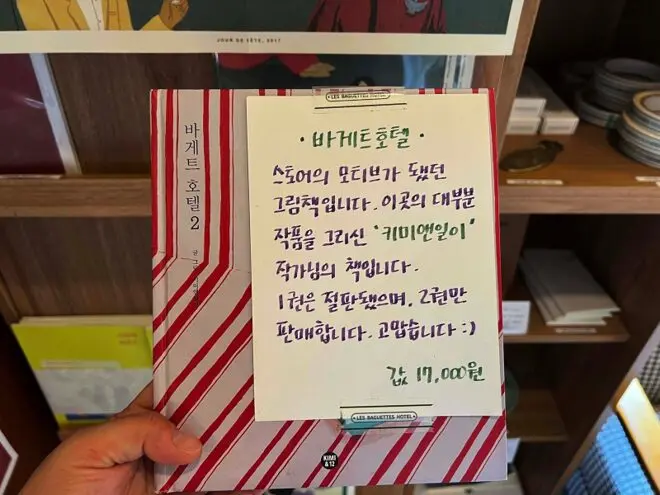 JOUR DE FÊTE, 2017
LES BAGUETTES HOTEL
바게트 호텔 2
· 바게트호텔 ·
스토어의 모티브가 됐던
그림책입니다. 이곳의 대부분
작품을 그리신 '키미앤일이'
작가님의 책입니다.
1권은 절판됐으며, 2권만
판매합니다. 고맙습니다 :)
값 17,000원
LES BAGUETTES HOTEL
KIMI
& 12